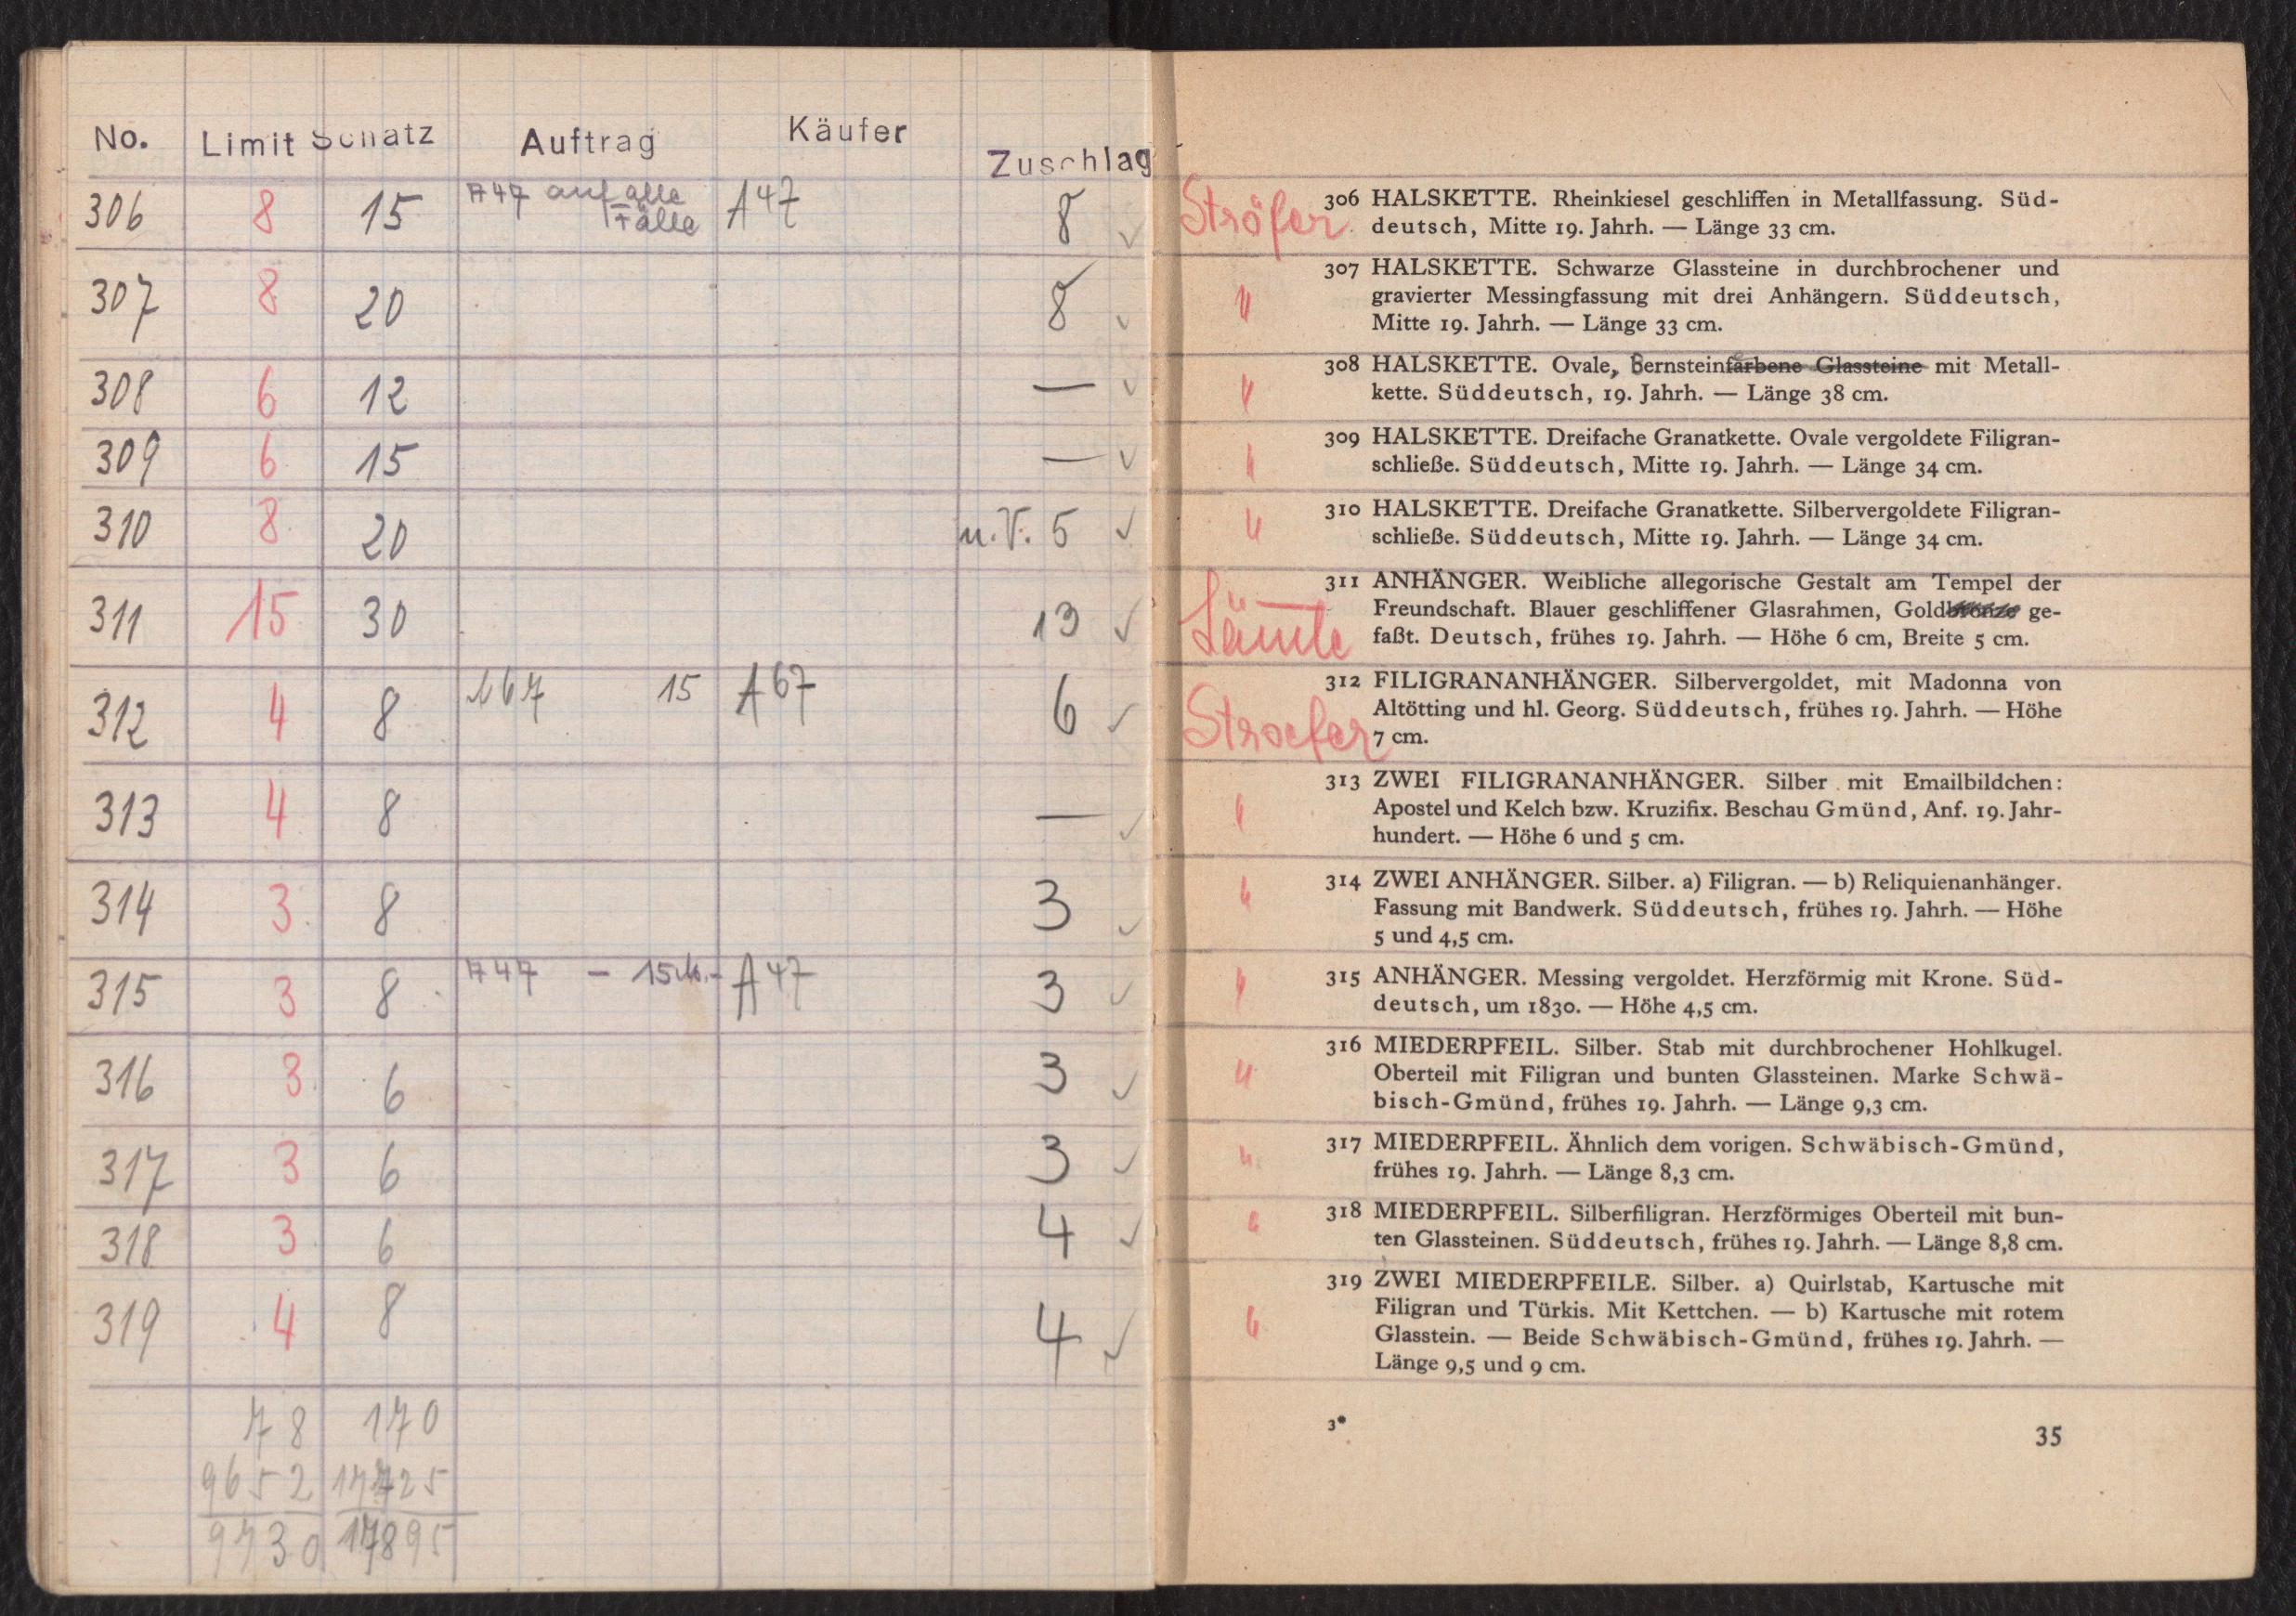 No. Limit Schatz Auftrag Käufer Zuschlag
306 8 15 A47 auf alle Fälle A47 8 ✓
307 8 20 8 ✓
308 6 12 — ✓
309 6 15 — ✓
310 8 20 u.V. 5 ✓
311 15 30 13 ✓
312 4 8 A67 15 A67 6 ✓
313 4 8 — ✓
314 3 8 3 ✓
315 3 8 A47 - 15 M.- A47 3 ✓
316 3 6 3 ✓
317 3 6 3 ✓
318 3 6 4 ✓
319 4 8 4 ✓
78 170
9652 17725
9730 17895
Ströfer 306 HALSKETTE. Rheinkiesel geschliffen in Metallfassung. Süd-
deutsch, Mitte 19. Jahrh. — Länge 33 cm.
" 307 HALSKETTE. Schwarze Glassteine in durchbrochener und
gravierter Messingfassung mit drei Anhängern. Süddeutsch,
Mitte 19. Jahrh. — Länge 33 cm.
" 308 HALSKETTE. Ovale, Bernsteinfarbene Glassteine mit Metall-
kette. Süddeutsch, 19. Jahrh. — Länge 38 cm.
" 309 HALSKETTE. Dreifache Granatkette. Ovale vergoldete Filigran-
schließe. Süddeutsch, Mitte 19. Jahrh. — Länge 34 cm.
" 310 HALSKETTE. Dreifache Granatkette. Silbervergoldete Filigran-
schließe. Süddeutsch, Mitte 19. Jahrh. — Länge 34 cm.
311 ANHÄNGER. Weibliche allegorische Gestalt am Tempel der
Freundschaft. Blauer geschliffener Glasrahmen, Goldbronze ge-
faßt. Deutsch, frühes 19. Jahrh. — Höhe 6 cm, Breite 5 cm.
Stroefer 312 FILIGRANANHÄNGER. Silbervergoldet, mit Madonna von
Altötting und hl. Georg. Süddeutsch, frühes 19. Jahrh. — Höhe
7 cm.
" 313 ZWEI FILIGRANANHÄNGER. Silber mit Emailbildchen:
Apostel und Kelch bzw. Kruzifix. Beschau Gmünd, Anf. 19. Jahr-
hundert. — Höhe 6 und 5 cm.
" 314 ZWEI ANHÄNGER. Silber. a) Filigran. — b) Reliquienanhänger.
Fassung mit Bandwerk. Süddeutsch, frühes 19. Jahrh. — Höhe
5 und 4,5 cm.
" 315 ANHÄNGER. Messing vergoldet. Herzförmig mit Krone. Süd-
deutsch, um 1830. — Höhe 4,5 cm.
" 316 MIEDERPFEIL. Silber. Stab mit durchbrochener Hohlkugel.
Oberteil mit Filigran und bunten Glassteinen. Marke Schwä-
bisch-Gmünd, frühes 19. Jahrh. — Länge 9,3 cm.
" 317 MIEDERPFEIL. Ähnlich dem vorigen. Schwäbisch-Gmünd,
frühes 19. Jahrh. — Länge 8,3 cm.
" 318 MIEDERPFEIL. Silberfiligran. Herzförmiges Oberteil mit bun-
ten Glassteinen. Süddeutsch, frühes 19. Jahrh. — Länge 8,8 cm.
" 319 ZWEI MIEDERPFEILE. Silber. a) Quirlstab, Kartusche mit
Filigran und Türkis. Mit Kettchen. — b) Kartusche mit rotem
Glasstein. — Beide Schwäbisch-Gmünd, frühes 19. Jahrh. —
Länge 9,5 und 9 cm.
3*
35